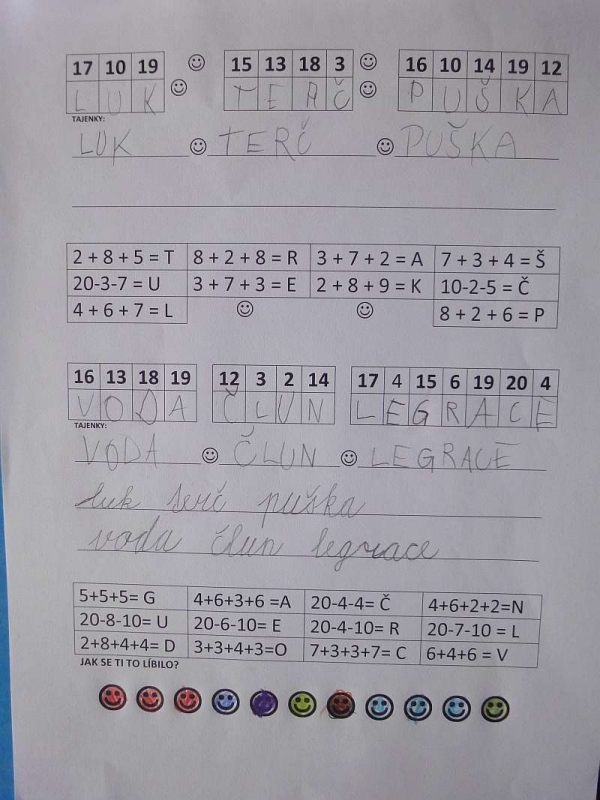 17 10 19 15 13 18 3 16 10 14 19 12
L U K T E R Č P U Š K A
TAJENKY:
LUK TERČ PUŠKA
2 + 8 + 5 = T 8 + 2 + 8 = R 3 + 7 + 2 = A 7 + 3 + 4 = Š
20-3-7 = U 3 + 7 + 3 = E 2 + 8 + 9 = K 10-2-5 = Č
4 + 6 + 7 = L 8 + 2 + 6 = P
16 13 18 19 12 3 2 14 17 4 15 6 19 20 4
V O D A Č L U N L E G R A C E
TAJENKY:
VODA ČLUN LEGRACE
luk terč puška
voda člun legrace
5+5+5= G 4+6+3+6 =A 20-4-4= Č 4+6+2+2=N
20-8-10= U 20-6-10= E 20-4-10= R 20-7-10 = L
2+8+4+4= D 3+3+4+3=O 7+3+3+7= C 6+4+6 = V
JAK SE TI TO LÍBILO?